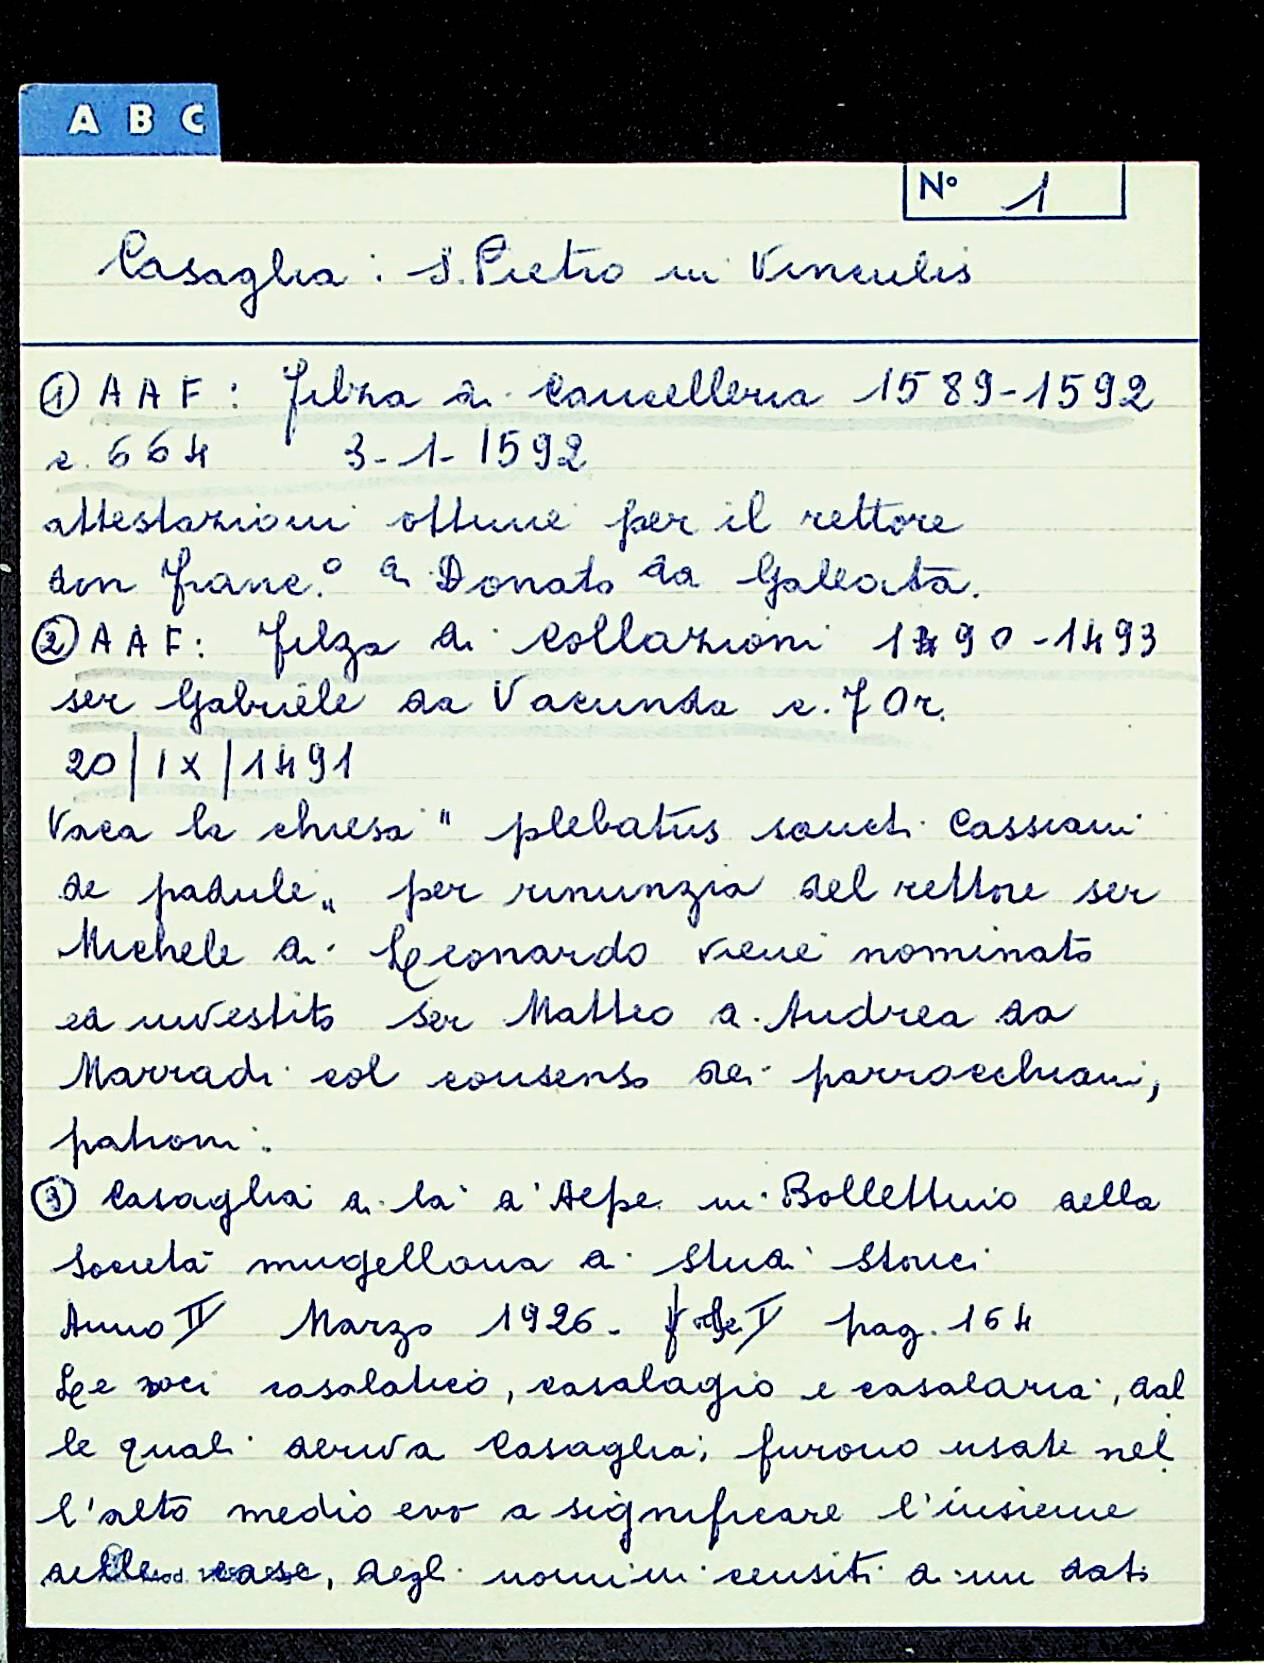 A B C
N° 1
Casaglia: S. Pietro in Vinculis
① AAF: filza di Cancelleria 1589-1592
c. 664 3-1-1592
attestazioni ottime per il rettore
don Franc.° di Donato da Galeata.
② AAF: Filza di Collazioni 1490-1493
ser Gabriele da Vacunda c. 70r.
20/IX/1491
Vaca la chiesa "plebatus sancti Cassiani
de padule" per rinunzia del rettore ser
Michele di Leonardo viene nominato
ed investito ser Matteo d. Andrea da
Marradi col consenso dei parrocchiani,
patroni.
③ Casaglia di là d'Alpe in Bollettino della
Società mugellana di Studi Storici
Anno II Marzo 1926- V pag. 164
Le voci casalatico, casalagio e casalaria, dal
le quali deriva Casaglia; furono usate nel
l'alto medio evo a significare l'insieme
delle case, degl. uomini censiti di un dato